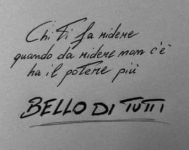 Chi ti fa ridere
quando da ridere non c'è
ha il potere più
BELLO DI TUTTI